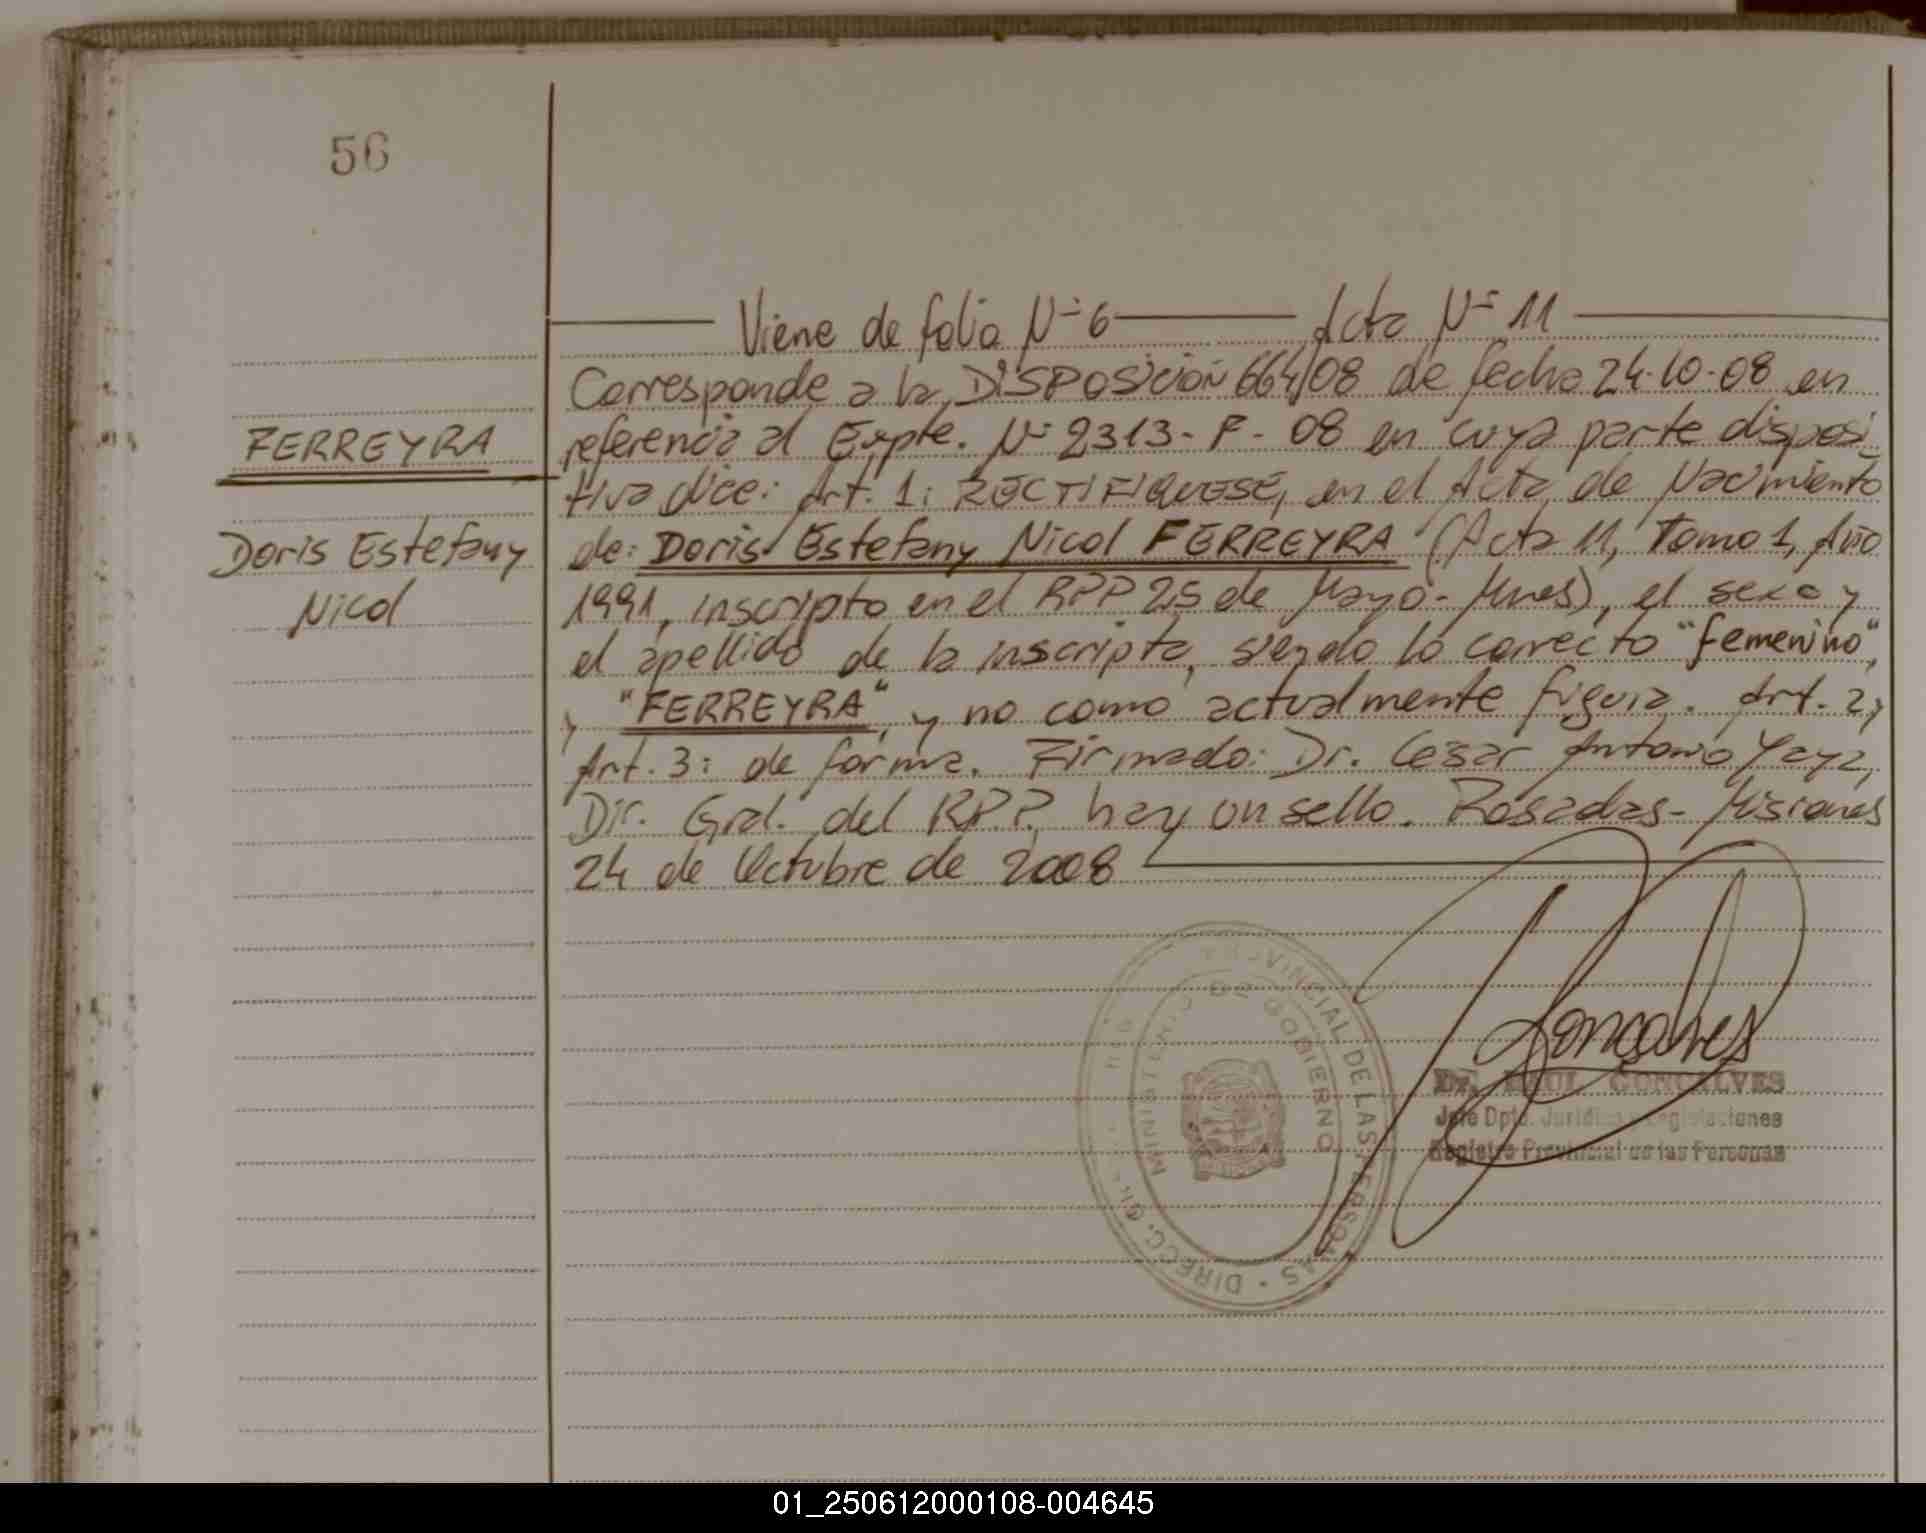 56
Viene de folio Nº 6 Acta Nº 11
Corresponde a la DISPOSICIÓN 664/08 de fecha 24-10-08 en
referencia al Expte. Nº 2313-F-08 en cuya parte disposi-
tiva dice: Art. 1: RECTIFIQUESE, en el Acta de Nacimiento
de: Doris Estefany Nicol FERREYRA (Acta 11, Tomo 1, Año
1991, inscripto en el RPP 25 de Mayo - Mnes), el sexo y
el apellido de la inscripta, siendo lo correcto "femenino",
y "FERREYRA", y no como actualmente figura. Art. 2 y
Art. 3: de forma. Firmado: Dr. Cesar Antonio Yaya,
Dir. Gral. del RPP. hay un sello. Posadas - Misiones
24 de Octubre de 2008
FERREYRA
Doris Estefany
Nicol
PROVINCIAL DE LAS PERSONAS · DIRECC.
MINISTERIO DE GOBIERNO
Goncalves
Dr. RAUL GONCALVES
Jefe Dpto.
Registro Provincial de las Personas
01_250612000108-004645